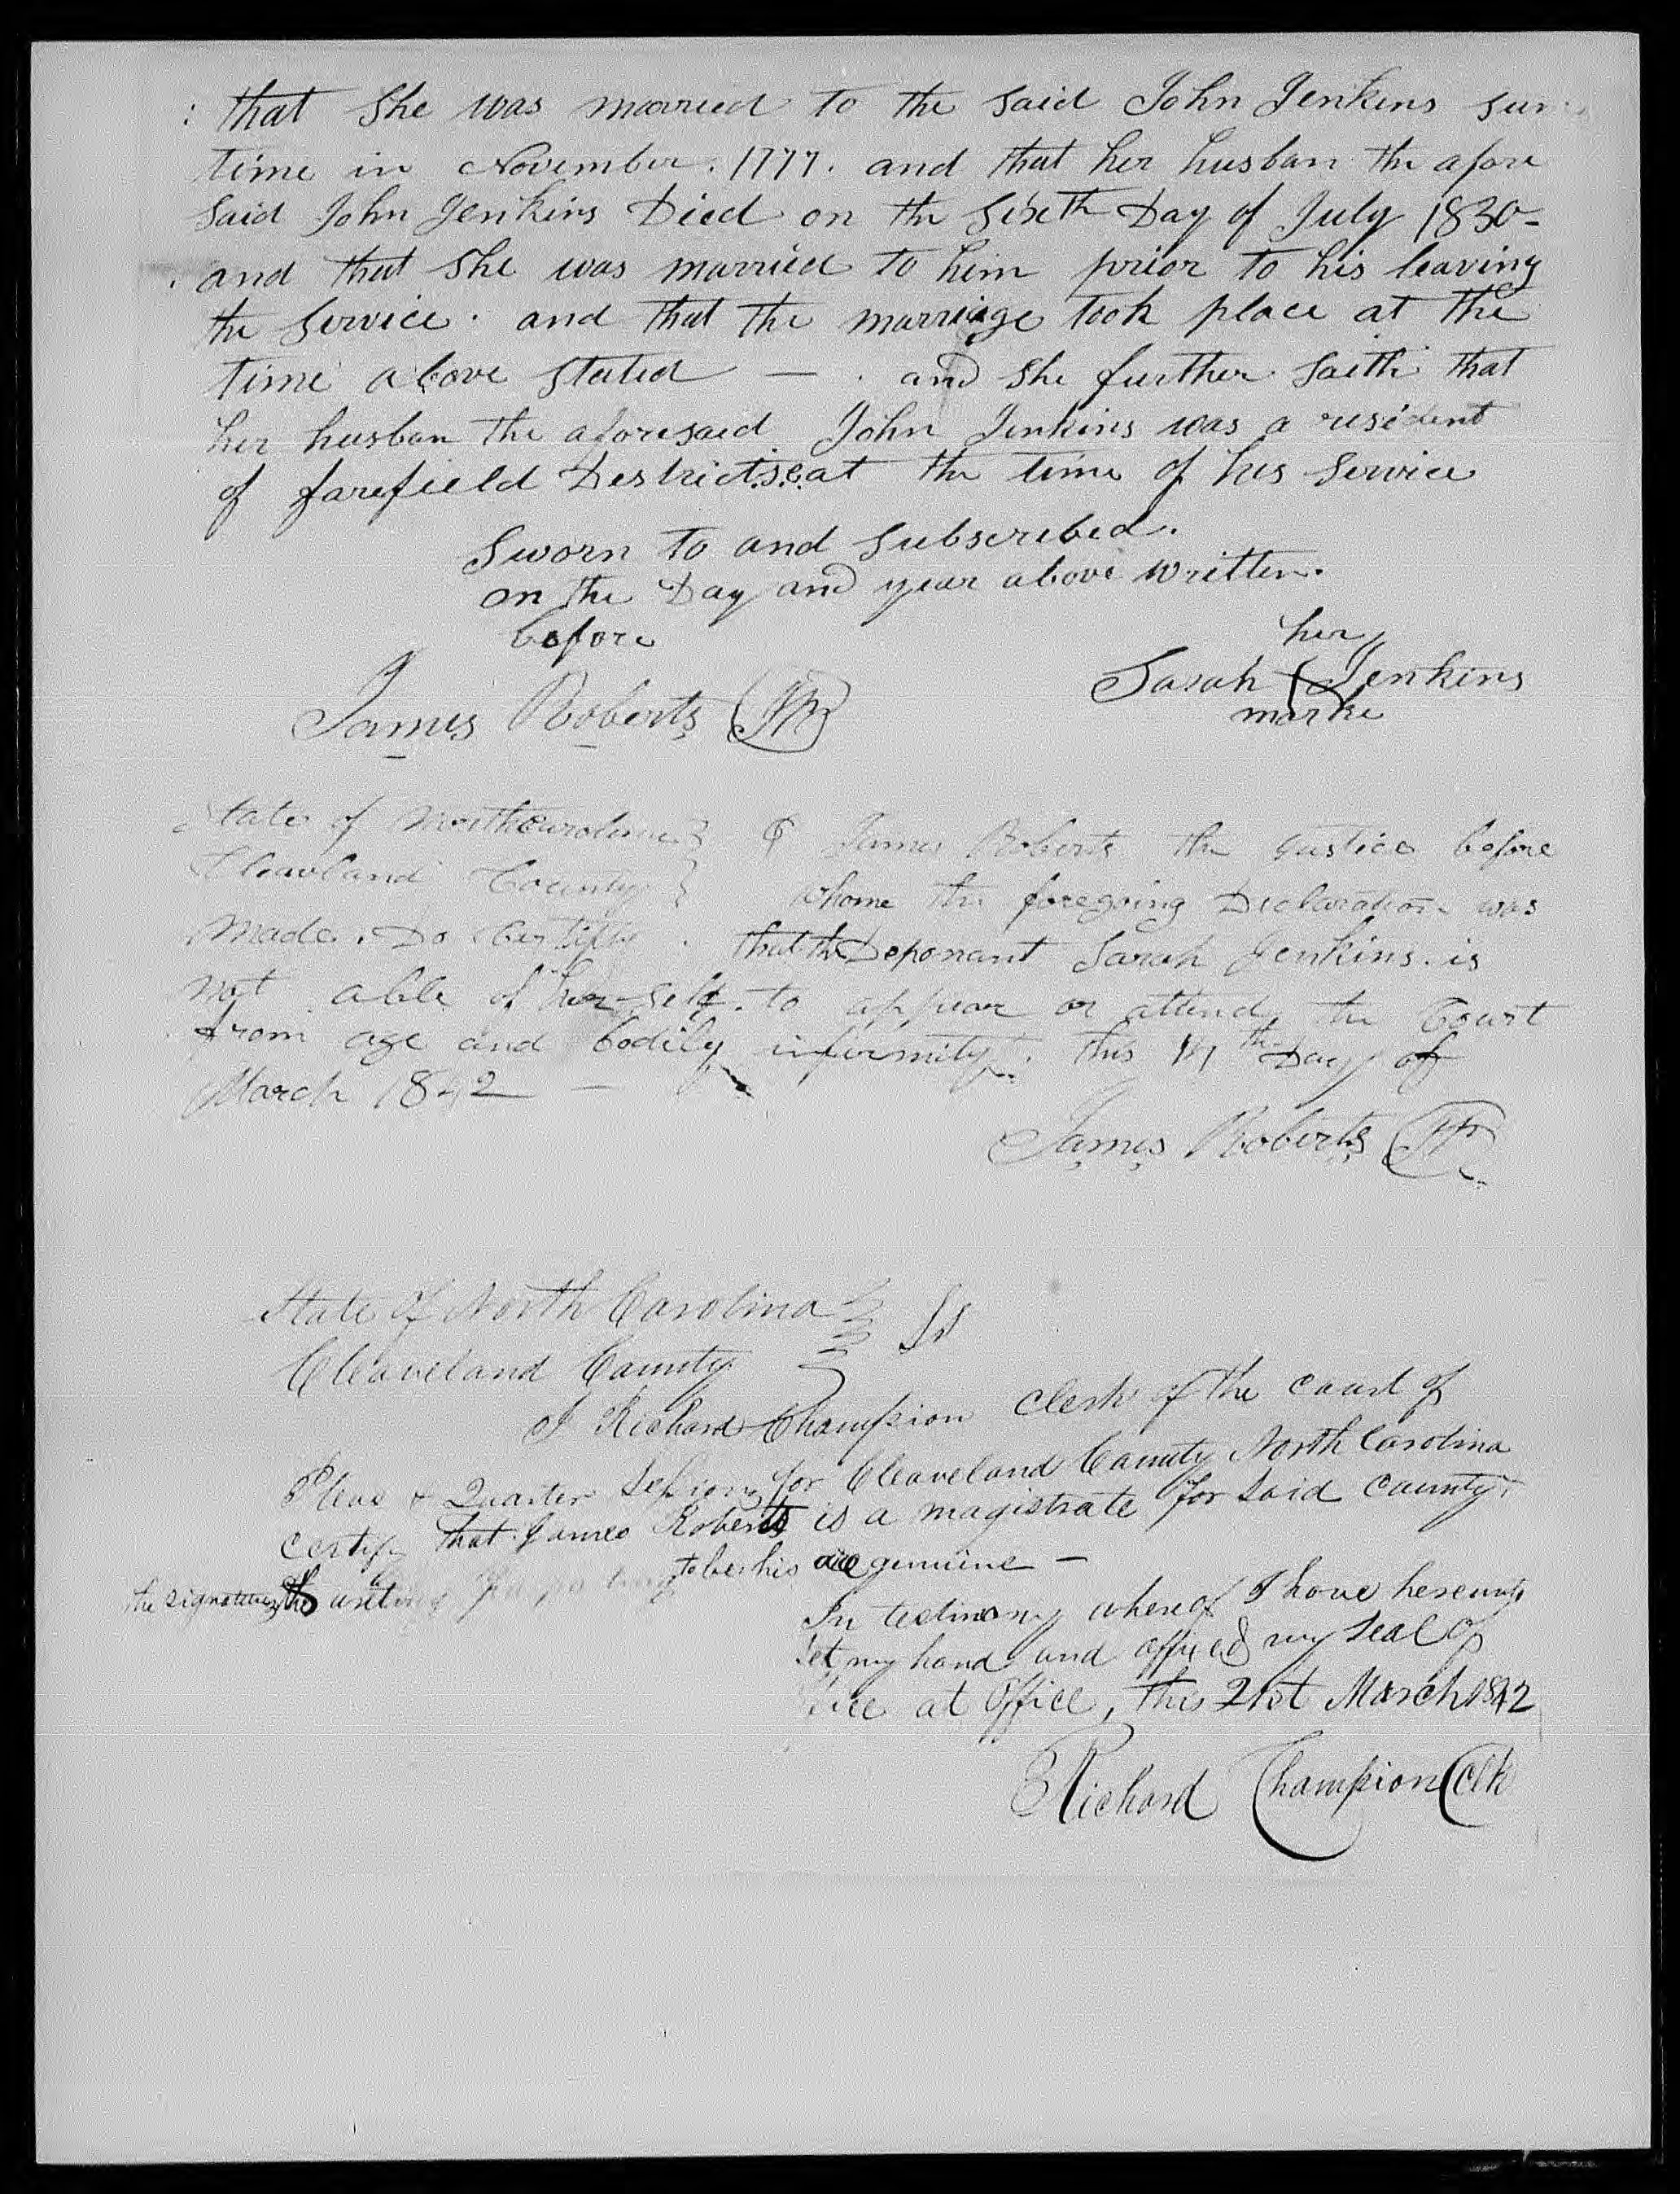 : that She was married to the said John Jenkins sum
time in November. 1777. and that her husban the afore
Said John Jenkins Died on the Sixth Day of July 1830-
and that She was married to him prior to his leaving
the Service. and that the marriage took place at the
time above Stated — . and She further Saith that
her husban the aforesaid John Jenkins was a resident
of farefield Destrict.s.c.at the time of his Service
Sworn to and Subscribed.
on the Day and year above written.
before
her
Sarah Jenkins
marke
James Roberts JP
State of Northcarolina } I James Roberts the Justice before
Cleavland County } whome the foregoing Declaration was
Made. Do Certify . that the Deponant Sarah Jenkins. is
not able of her self. to appear or attend the Court
from age and bodily infirmity. this 17th Day of
March 1842 —
James Roberts JP
State of North Carolina } SS
Cleaveland County }
I Richard Champion Clerk of the Court of
Pleas & Quarter Sessions for Cleaveland County North Carolina
Certify that James Roberts is a magistrate for Said County.
the signature to be his are genuine —
In testimony whereof I have hereunto
Set my hand and affixed my Seal of
at Office, this 21st March 1842
Richard Champion Clk